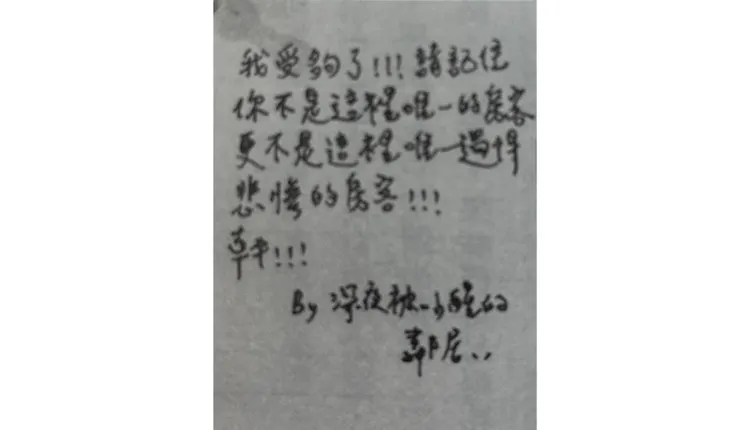 我受夠了!!!請記住
你不是這裡唯一的房客
更不是這裡唯一過得
悲慘的房客!!!
幹!!!
By 深夜被吵醒的
鄰居..